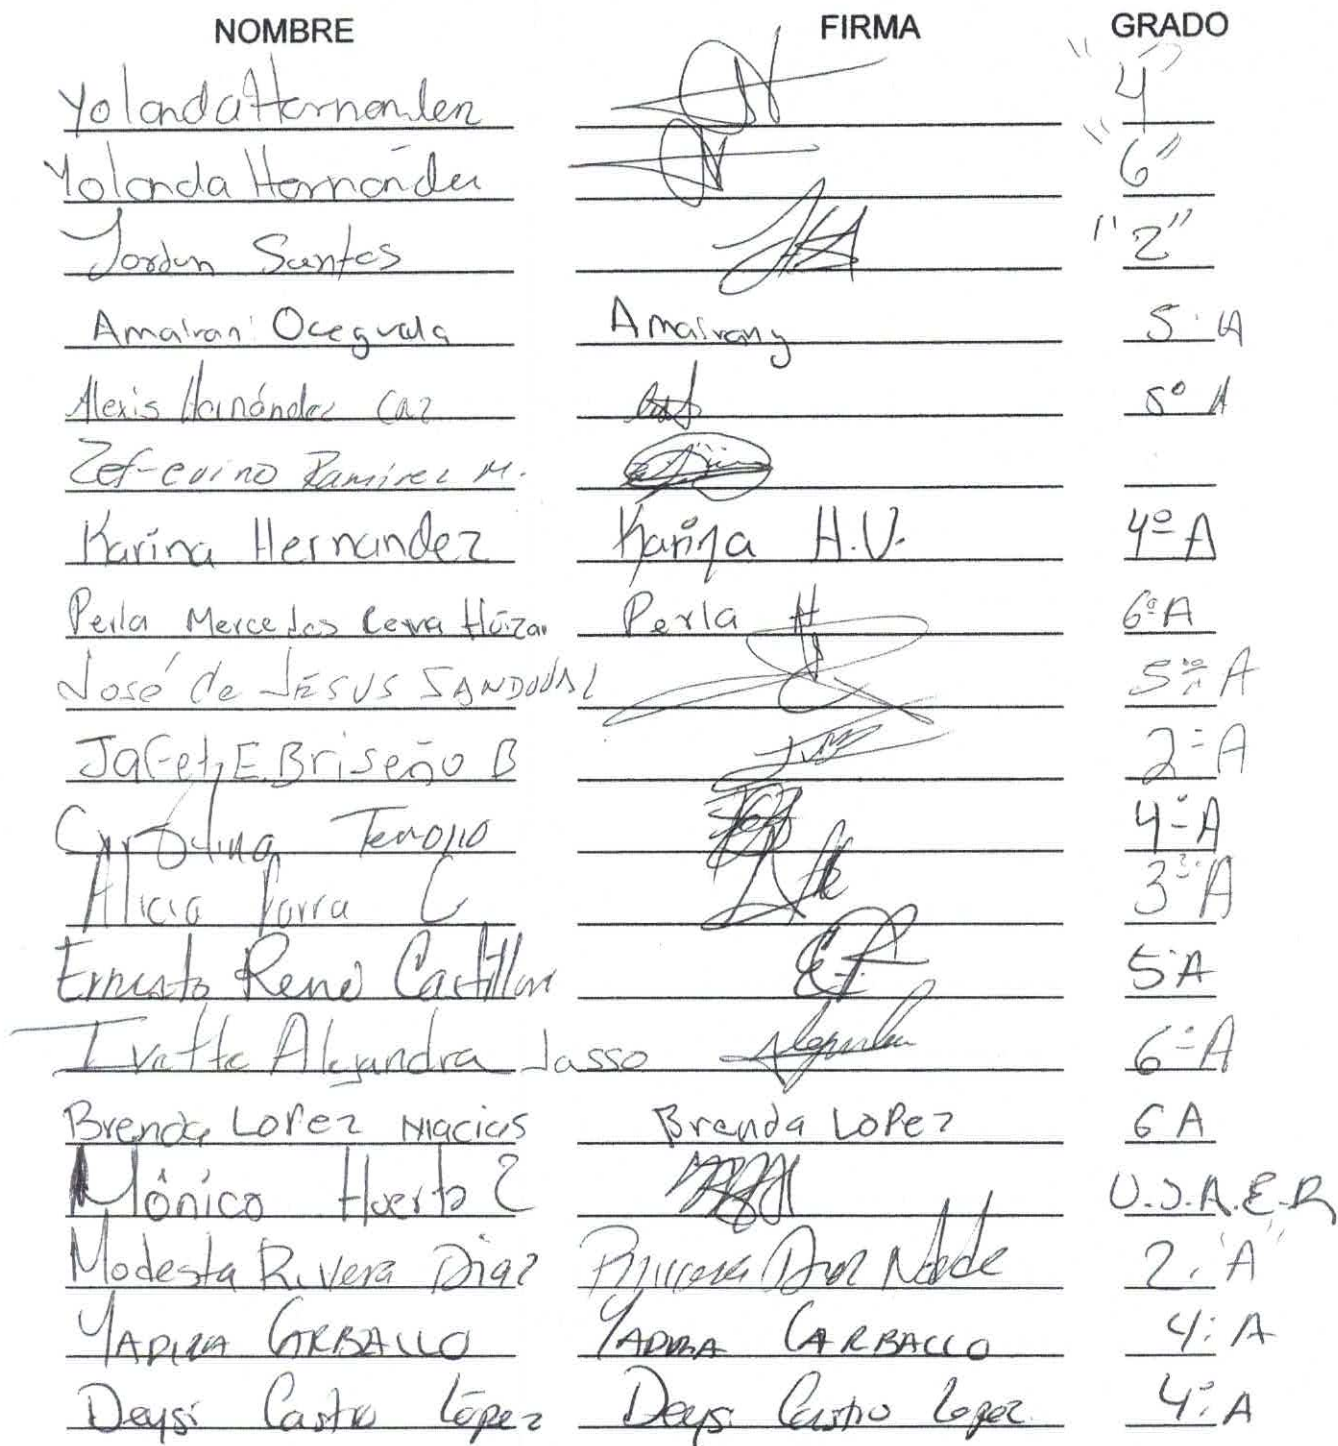 NOMBRE FIRMA GRADO
Yolanda Hernandez "4"
Yolanda Hernández "6"
Jordan Santos "2"
Amairani Oceguda Amairany 5° A
Alexis Hernández 5° A
Zef-erino Ramirez M.
Karina Hernandez Karina H.V. 4º A
Perla Mercedes Huizar Perla H 6º A
José de JESUS SANDOVAL 5to A
Jafet E. Briseño B 2º A
Carolina Tenorio 4º A
Alicia Parra C 3º A
Ernesto René Castillon 5 A
Ivette Alejandra Jasso Alejandra 6º A
Brenda LoPez Macias Brenda LoPez 6 A
Mónica Huerta U.S.A.E.R
Modesta Rivera Diaz 2. "A"
YADIRA CARBALLO YADIRA CARBALLO 4: A
Deysi Castro López Deysi Castro Lopez 4: A